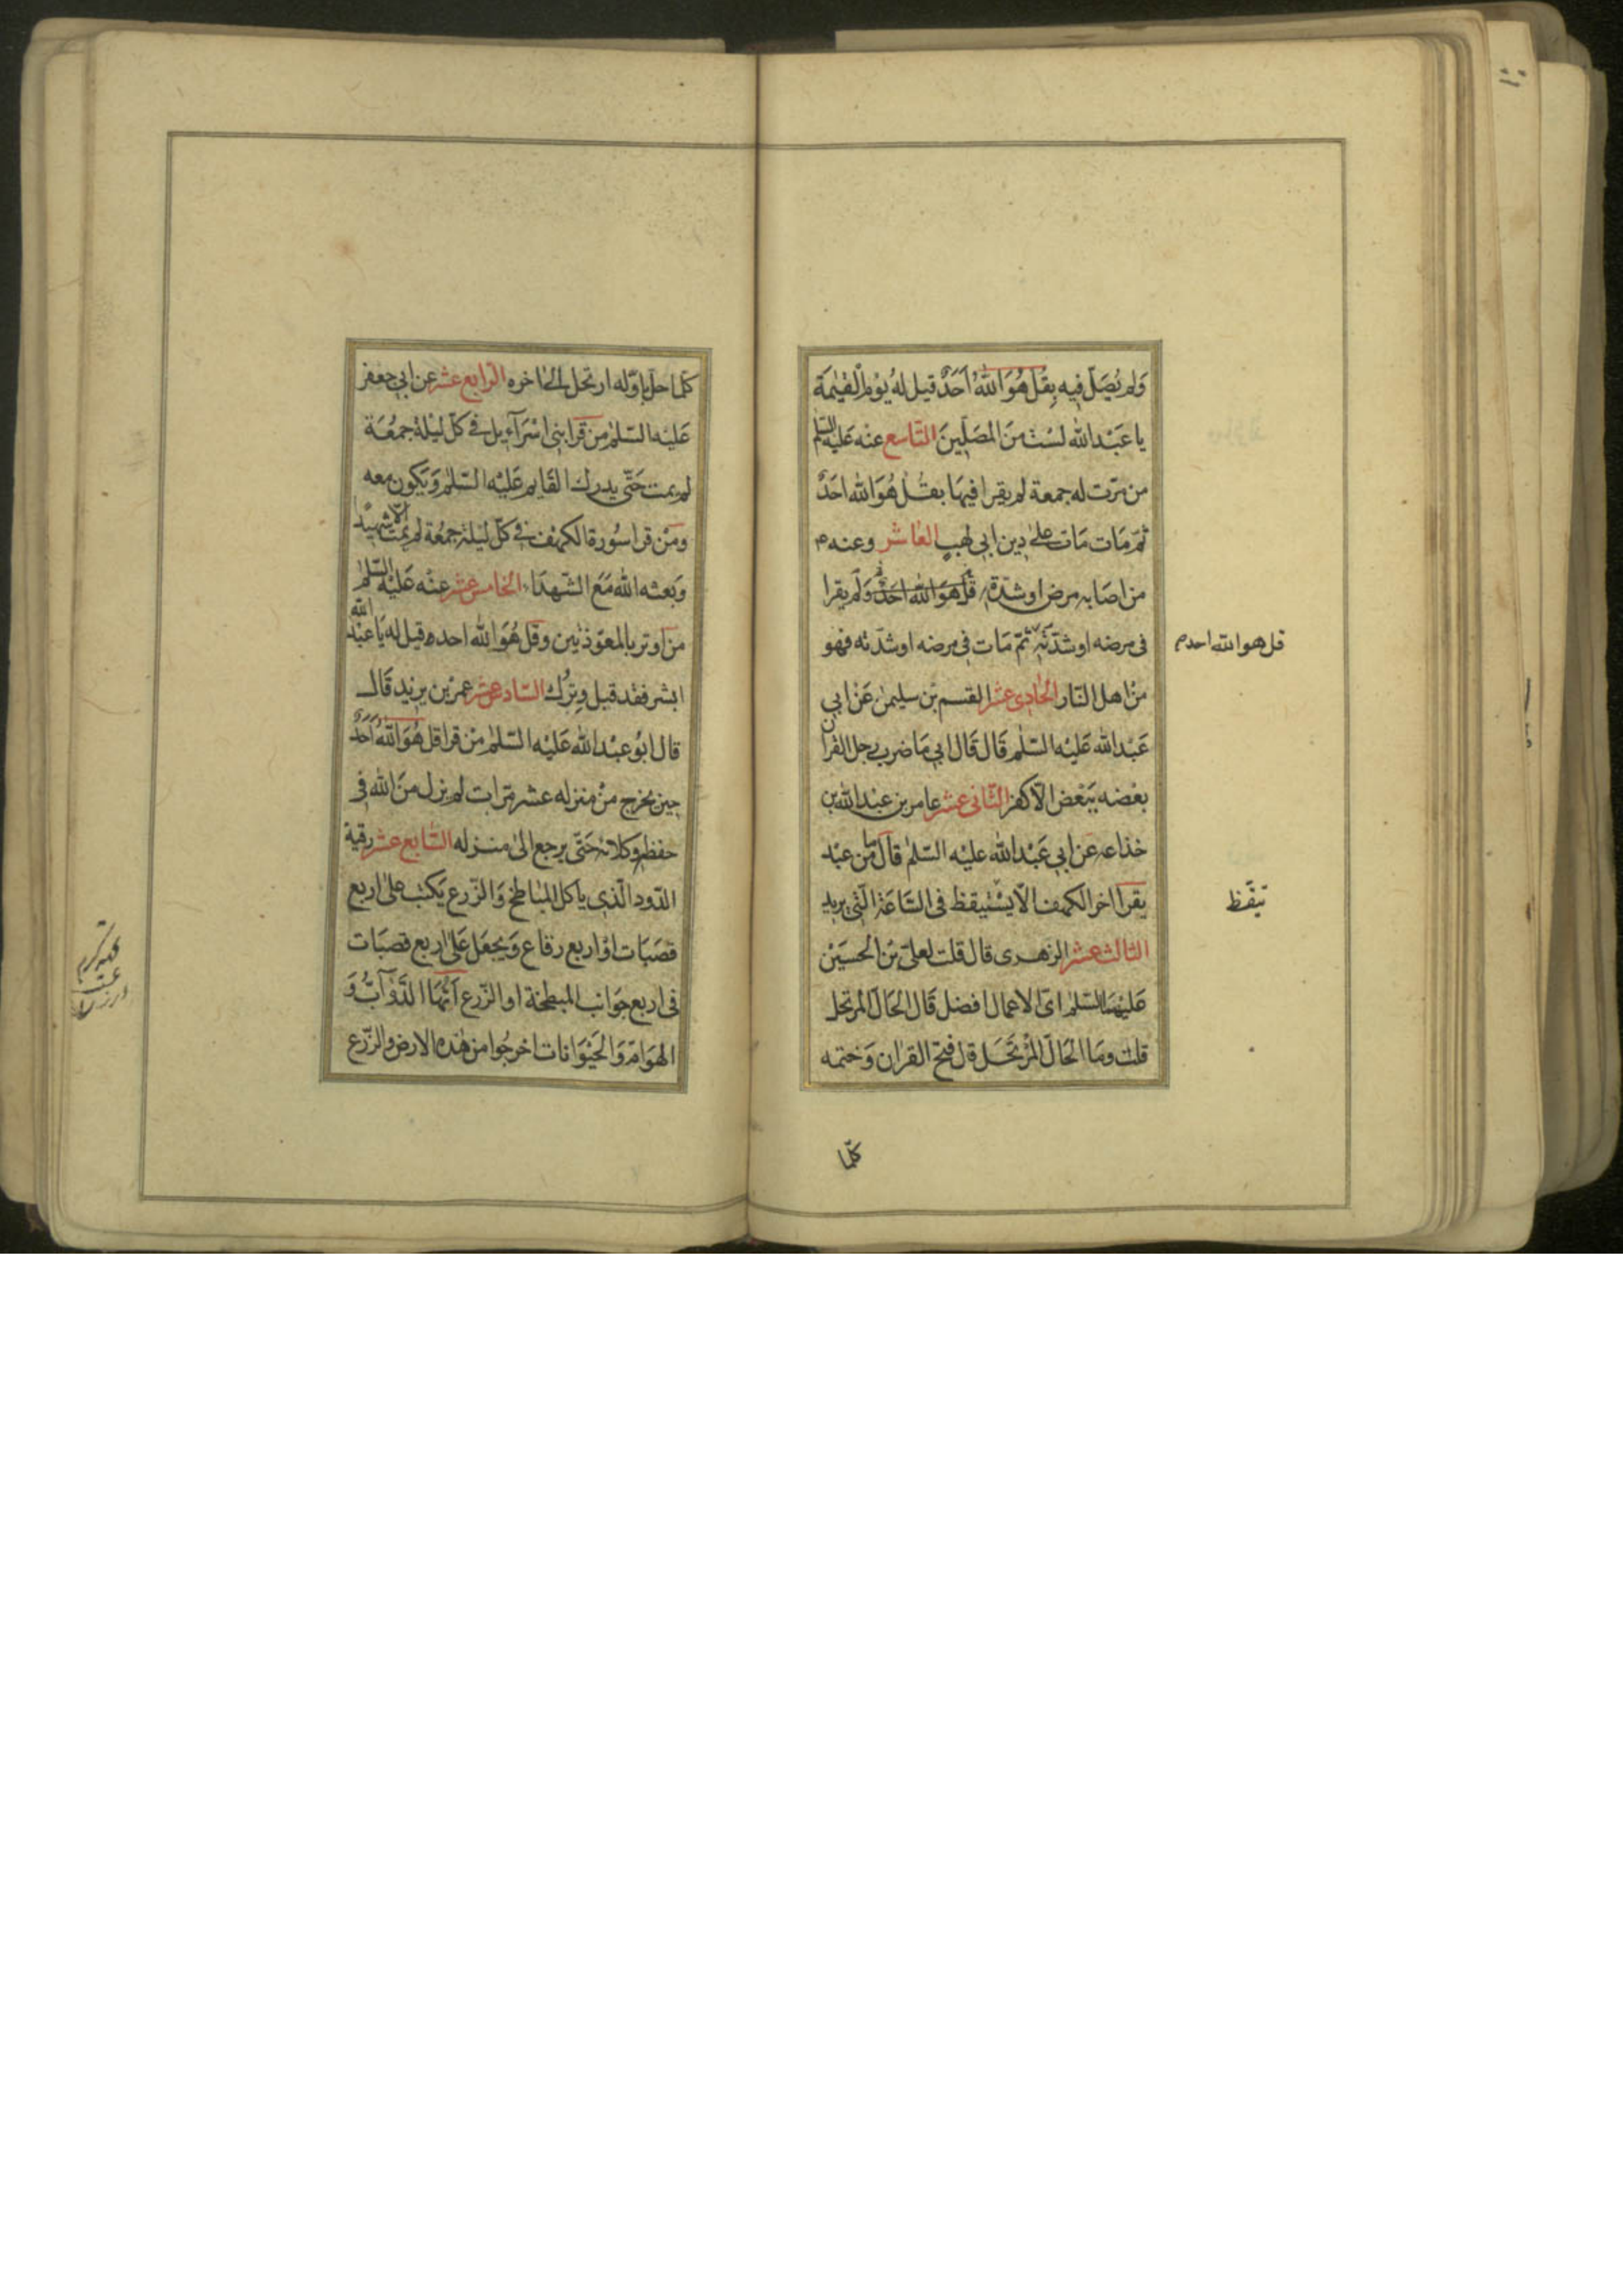 وَلم يُصَلِّ فيهِ بِقُل هُوَ اللّهُ اَحَدٌ قيل لهُ يَوْم الْقيٰمَة
يا عَبْد اللّه لسْت منَ المصَلّينَ التّاسع عنه عَليْه السّلم
من مرّت له جمعة لم يقرا فيهَا بقُل هُوَ اللّه احَدٌ
ثمّ مَات مَات على دين ابي لهبٍ العاشر وعنه ع
من اصَابه مرض او شدّة قل هوَ اللّه احَدٌ وَلم يقرا
فى مرضه او شدّته ثمّ مَات فى مرضه او شدّته فهو
قل هو اللّه احد م
منْ اهل النّار الحادى عشر القسم بن سليمن عَنْ ابي
عَبْد اللّه عَليْه السّلم قَال قَال ابي مَا ضرب رجل القران
بعْضه ببَعْض الّا كفر الثّانى عشر عامر بن عبْد اللّه بن
خذاعه عَن ابي عَبْد اللّه عليْه السّلم قال ما من عبْد
يقرأ اخر الكهف الّا يسْتيقظ فى السّاعَة الّتى يريد
تيقّظ
الثالث عشر الزهرى قال قلت لعلىّ بن الحسَيْن
عَليْهمَا السّلم اىّ الاعمال افضل قَال الحَالّ المرتحل
قلت ومَا الحَالّ المرْتحَل قال فتح القرْان وَختمه
كلّما
كلّما حلّ باوّله ارتحل الى اخره الرّابع عشر عن ابي جعفر
عَليْه السّلم من قرا بنى اسْرَآءيل فى كلّ ليْلة جمعُة
لم يمت حَتّى يدرك القَايم عَليْه السّلم وَيَكون معه
ومَنْ قرا سُورة الكهف فى كلّ ليلة جمعُة لم يمت الّا شهيْدا
وَبعثه اللّه مَعَ الشّهدَاء الخامس عشر عنْه عَليْه السّلم
من اوتر بالمعوّذتين وقل هُوَ اللّه احد قيل له يَا عبْد اللّه
ابشر فقد قبل وترك السّادس عشر عمر بْن يزيد قَال
قال ابُو عبْد اللّه عَليْه السّلم منْ قرا قل هُوَ اللّهُ اَحَدٌ
حين يخرج منْ منزله عشر مرّات لم يزل منَ اللّه فى
حفظه وكلائه حَتّى يرجع الىٰ منزله السّابع عشر رقية
الدّود الّذى ياكل المبَاطخ وَالزّرع يكتب علىٰ اربع
قصَبَات اوْ اربع رقاع وَيجعَل عَلىٰ اربع قصبَات
فى اربع جَوانب المبطخة او الزّرع اَيّهَا الدَّوَآبُّ وَ
الهوَامّ وَالحَيْوَانات اخرجُوا من هٰذه الارض والزّرع